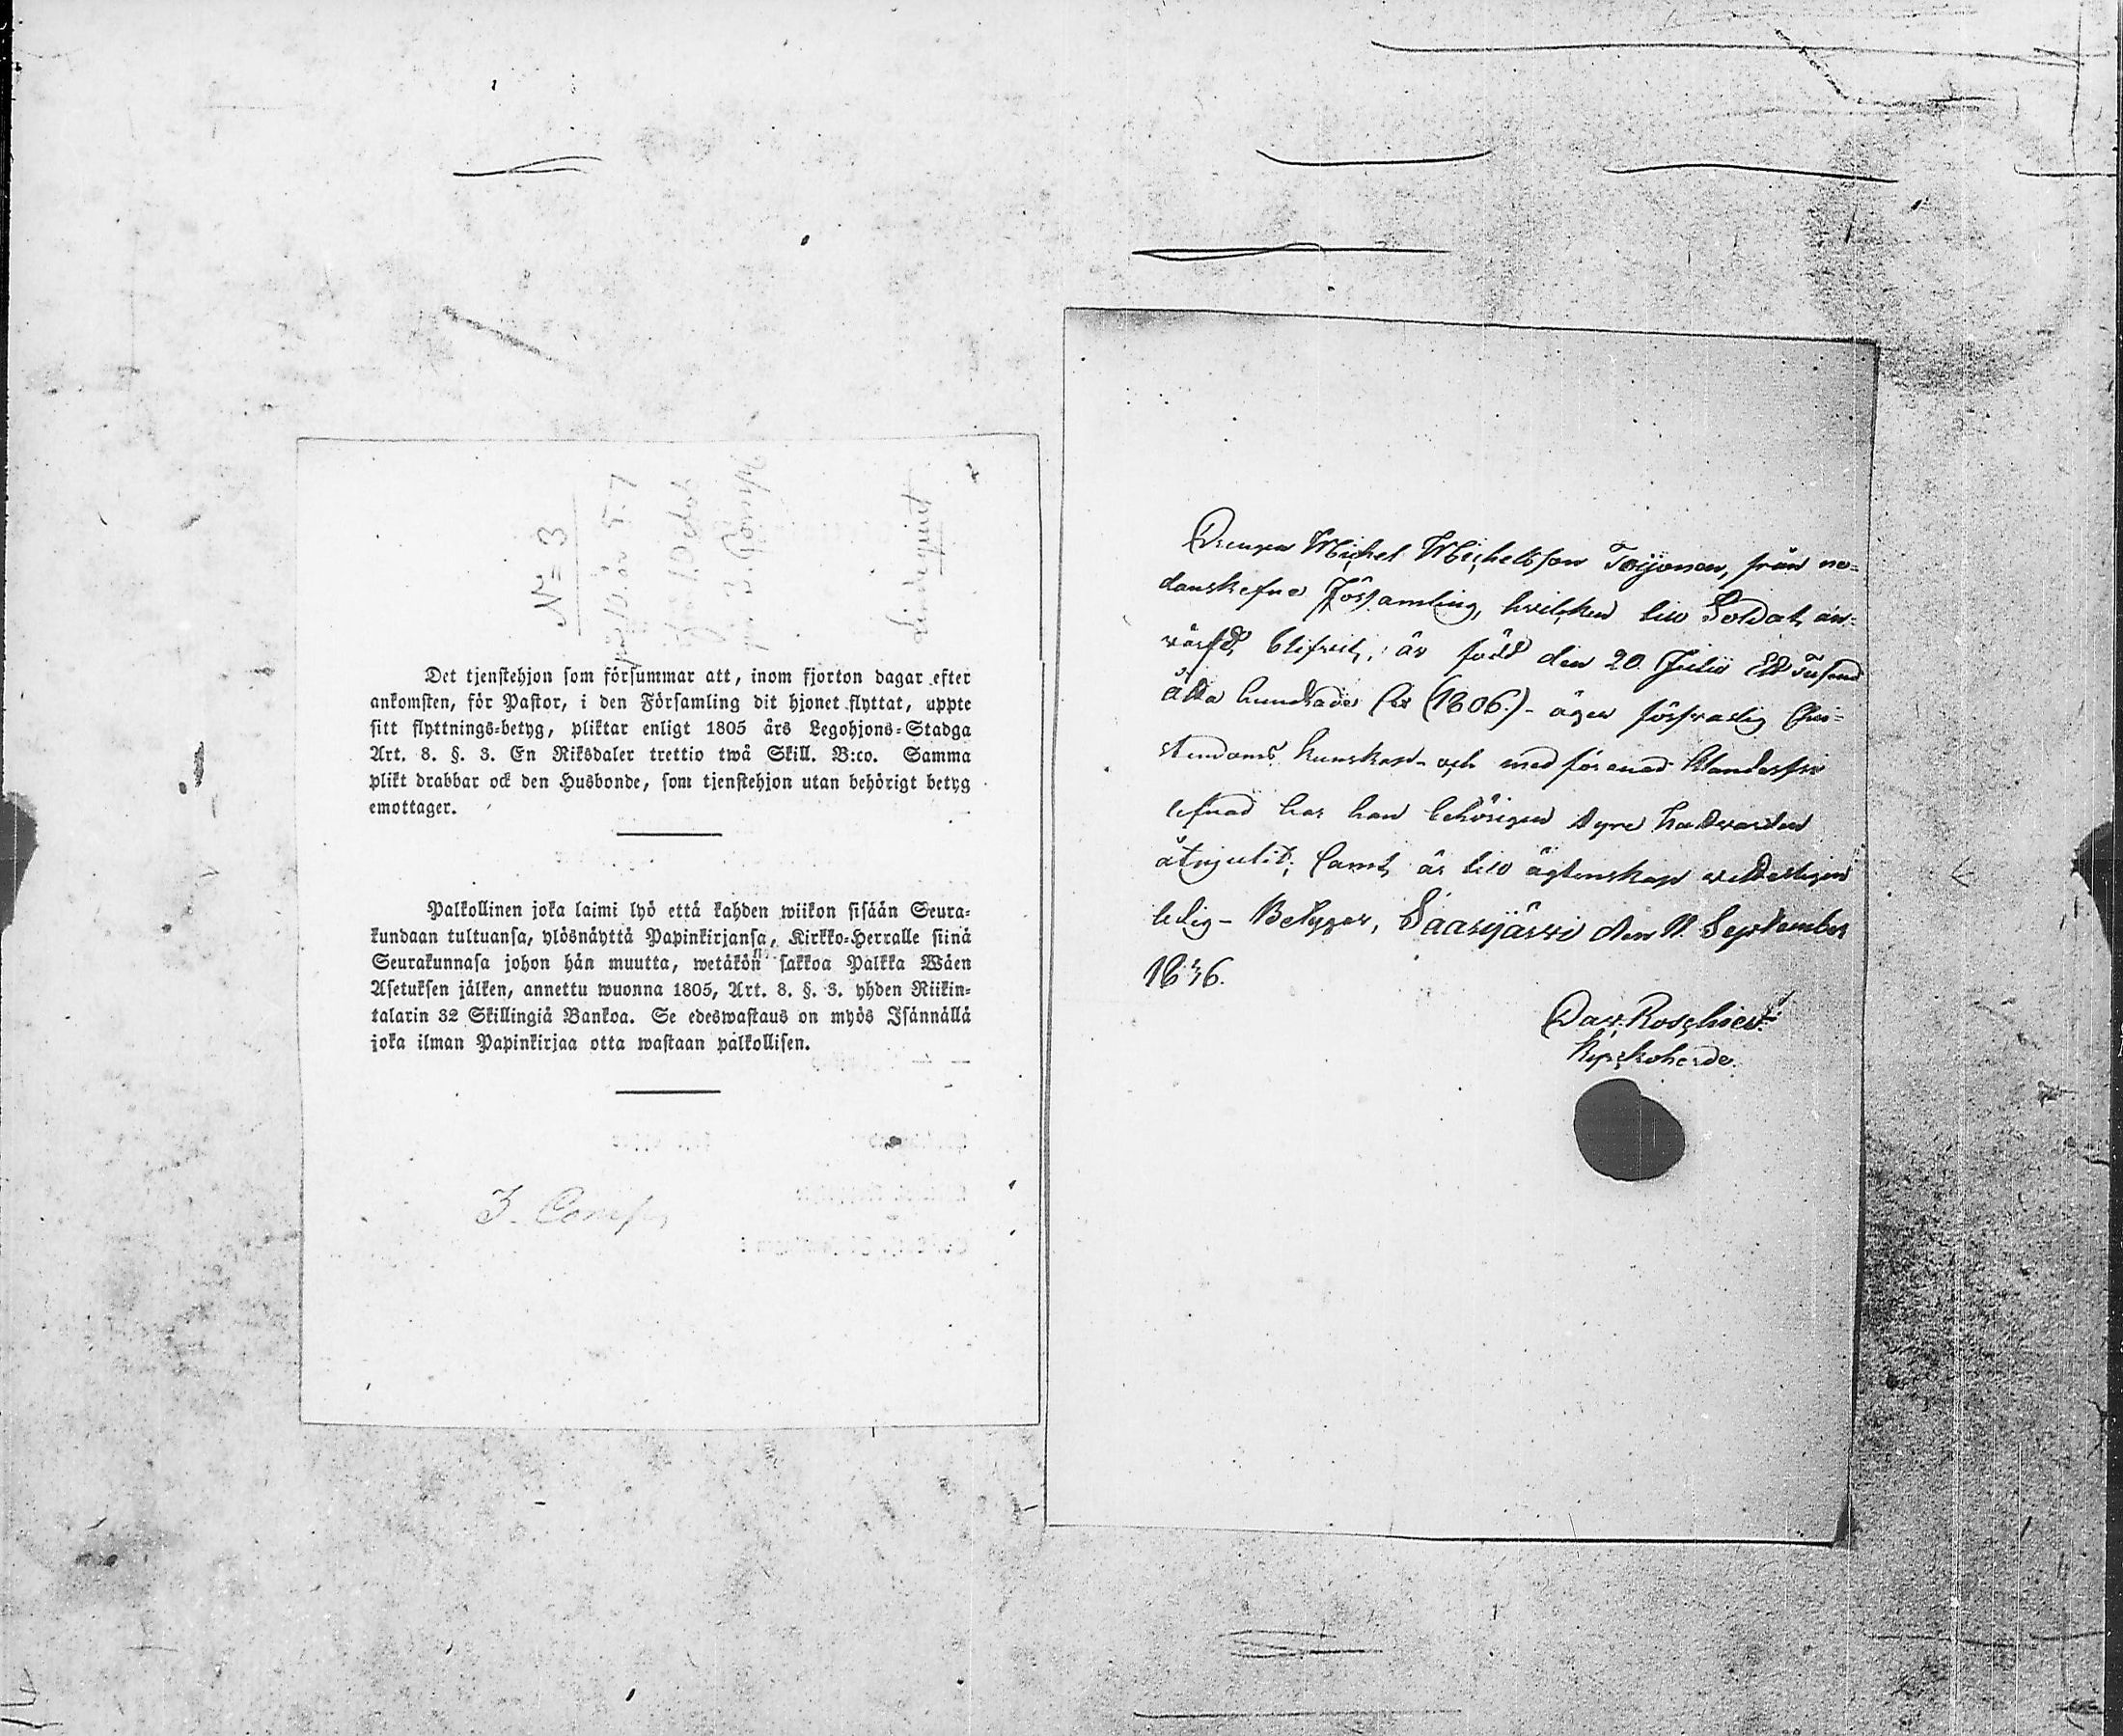 N:o 3
Det tjenstehjon som försummar att, inom fjorton dagar efter
ankomsten, för Pastor, i den Församling dit hjonet flyttat, uppte
sitt flyttnings-betyg, pliktar enligt 1805 års Legohjons-Stadga
Art. 8. §. 3. En Riksdaler trettio twå Skill. B:co. Samma
plikt drabbar ock den Husbonde, som tjenstehjon utan behörigt betyg
emottager.
Palkollinen joka laimi lyö että kahden wiikon sisään Seura-
kundaan tultuansa, ylösnäyttä Papinkirjansa, Kirkko-Herralle siinä
Seurakunnasa johon hän muutta, wetäkön sakkoa Palkka Wäen
Asetuksen jälken, annettu wuonna 1805, Art. 8. §. 3. yhden Riikin-
talarin 32 Skillingiä Bankoa. Se edeswastaus on myös Isännällä
joka ilman Papinkirjaa otta wastaan palkollisen.
3. Comp
Drengen Michel Michelsson Toijonen, från ne-
danskefne Församling, hvilken till Soldat an-
värfd blifvit, är född den 20 Julii Ett Tusend
åtta hundrade sex (1806.) - äger försvarlig Chri-
stendoms kunskap - och med förenad klanderfri
lefnad har han behörigen dyra Nattvarden
åtnjutit; samt är till ägtenskap veterligen
ledig - Betygar, Saarijärvi den 11 September
1846.
Dav. Roschier
Kyrckoherde.